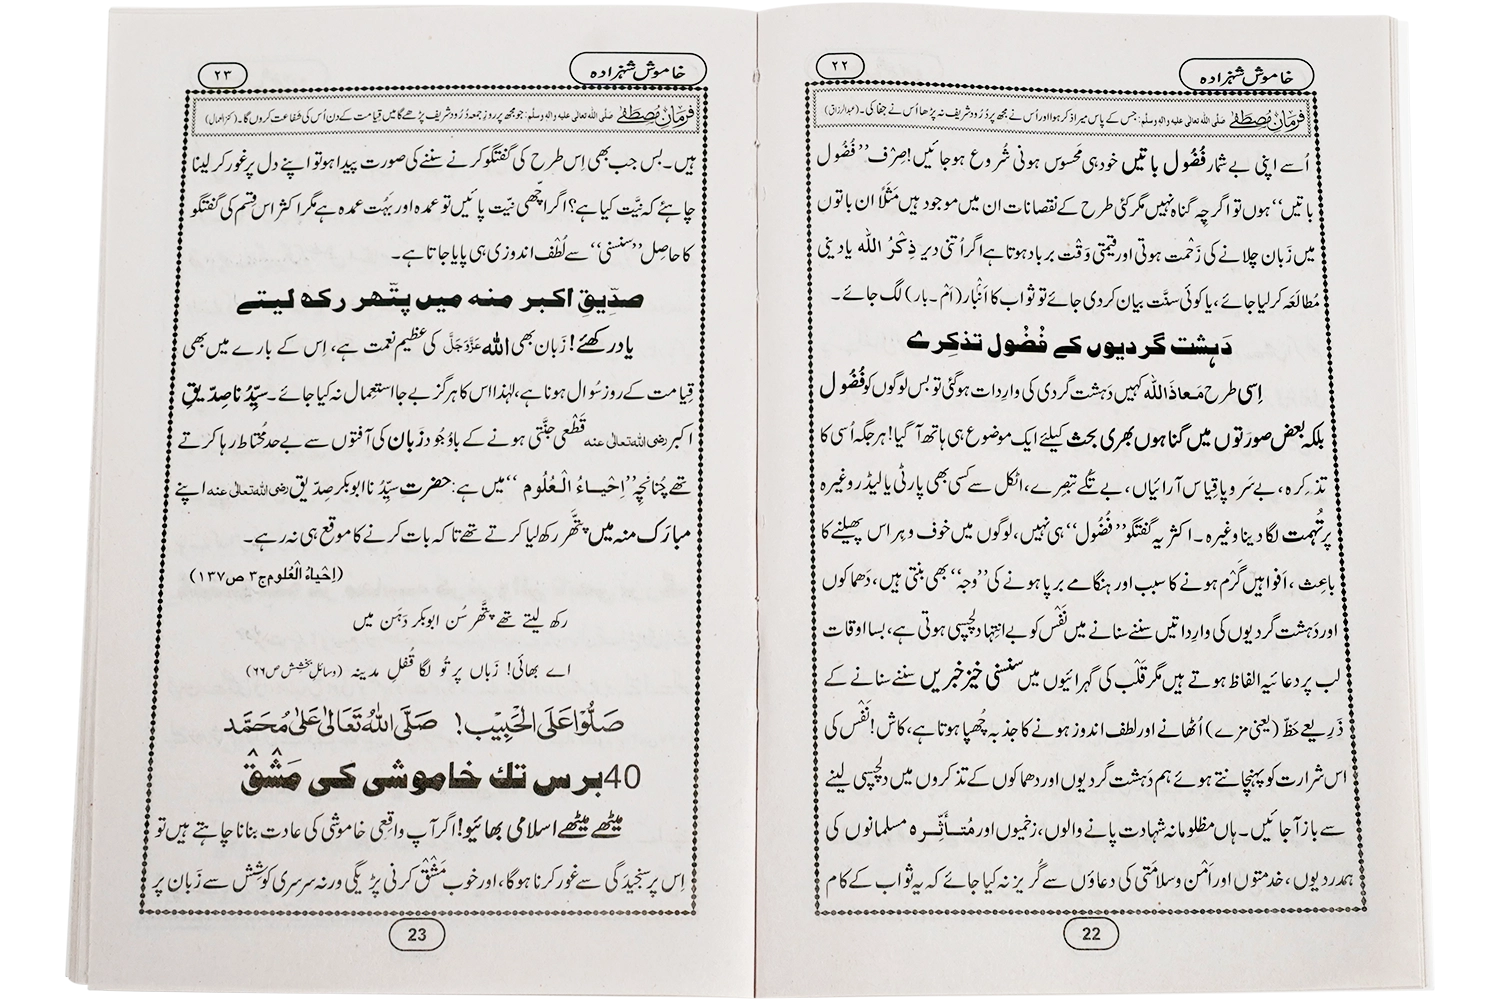 خاموش شہزادہ
۲۲
فرمانِ مصطفٰے صلَّی اللہ تعالٰی علیہ والہٖ وسلَّم: جس کے پاس میرا ذکر ہوا اور اُس نے مجھ پر دُرُود شریف نہ پڑھا اُس نے جفا کی۔ (عبدالرزاق)
اُسے اپنی بے شمار فُضُول باتیں خود ہی مَحسوس ہونی شُروع ہو جائیں! صِرف ’’فُضُول
باتیں‘‘ ہوں تو اگرچِہ گناہ نہیں مگر کئی طرح کے نقصانات ان میں موجود ہیں مَثَلًا ان باتوں
میں زَبان چلانے کی زَحْمت ہوتی اور قیمتی وَقْت برباد ہوتا ہے اگر اُتنی دیر ذِکْرُ اللہ یا دینی
مُطالَعَہ کرلیا جائے، یا کوئی سنَّت بیان کردی جائے تو ثواب کا اَنْبار (اَم۔بار) لگ جائے۔
دَہشت گردیوں کے فُضُول تذکِرے
اِسی طرح مَعاذَاللہ کہیں دَہشت گردی کی واردات ہوگئی تو بس لوگوں کو فُضُول
بلکہ بعض صورَتوں میں گناہوں بھری بحث کیلئے ایک موضوع ہی ہاتھ آگیا! ہر جگہ اُسی کا
تذکِرہ، بے سَروپا قِیاس آرائیاں، بے تُکے تبصِرے، اَٹکل سے کسی بھی پارٹی یا لیڈر وغیرہ
پر تُہمت لگا دینا وغیرہ۔ اکثر یہ گفتگو ’’فُضُول‘‘ ہی نہیں، لوگوں میں خوف وہِراس پھیلنے کا
باعِث، اَفواہیں گَرْم ہونے کا سبب اور ہنگامے برپا ہونے کی ’’وجہ‘‘ بھی بنتی ہیں، دَھماکوں
اور دَہشت گردیوں کی وارداتیں سننے سنانے میں نَفْس کو بے انتِہا دلچسپی ہوتی ہے، بسا اوقات
لب پر دعائیہ الفاظ ہوتے ہیں مگر قَلْب کی گہرائیوں میں سنسنی خیز خبریں سننے سنانے کے
ذَرِیعے حَظّ (یعنی مزے) اُٹھانے اور لطف اندوز ہونے کا جذبہ چُھپا ہوتا ہے، کاش! نَفْس کی
اس شرارت کو پہنچانتے ہوئے ہم دَہشت گردیوں اور دھماکوں کے تذکروں میں دلچسپی لینے
سے باز آجائیں۔ ہاں مظلومانہ شہادت پانے والوں، زخمیوں اور مُتأَثِّرہ مسلمانوں کی
ہمدردیوں، خدمتوں اور اَمْن وسلامَتی کی دعاؤں سے گُریز نہ کیا جائے کہ یہ ثواب کے کام
22
خاموش شہزادہ
۲۳
فرمانِ مصطفٰے صلَّی اللہ تعالٰی علیہ والہٖ وسلَّم: جو مجھ پر روزِ جمعہ دُرُود شریف پڑھے گا میں قیامت کے دن اُس کی شفاعت کروں گا۔ (کنز العمال)
ہیں۔ بس جب بھی اِس طرح کی گفتگو کرنے سننے کی صورت پیدا ہو تو اپنے دل پر غور کرلینا
چاہئے کہ نیَّت کیا ہے؟ اگر اچّھی نیّت پائیں تو عمدہ اور بہُت عمدہ ہے مگر اکثر اس قِسْم کی گفتگو
کا حاصِل ’’سنسنی‘‘ سے لُطْف اندوزی ہی پایا جاتا ہے۔
صدّیقِ اکبر منہ میں پتَّھر رکھ لیتے
یاد رکھئے! زَبان بھی اللہ عَزَّوَجَلَّ کی عظیم نعمت ہے، اِس کے بارے میں بھی
قِیامت کے روز سُوال ہونا ہے، لہٰذا اس کا ہرگز بے جا استعِمال نہ کیا جائے۔ سیِّدُنا صِدّیقِ
اکبر رضی اللہ تعالٰی عنہ قَطْعی جنَّتی ہونے کے باوُجُود زَبان کی آفتوں سے بے حد مُحتاط رہا کرتے
تھے چُنانچِہ ’’اِحْیاءُ الْعُلُوم‘‘ میں ہے: حضرتِ سیِّدُنا ابوبکر صِدّیق رضی اللہ تعالٰی عنہ اپنے
مبارَک منہ میں پتَّھر رکھ لیا کرتے تھے تاکہ بات کرنے کا موقع ہی نہ رہے۔
(اِحْیاءُ الْعُلُوم ج۳ ص۱۳۷)
رکھ لیتے تھے پتَّھر سُن ابوبکر دَہَن میں
اے بھائی! زَباں پر تُو لگا قُفلِ مدینہ (وسائلِ بخشِش ص۶۶)
صَلُّوْا عَلَی الْحَبِیْب! صَلَّی اللہُ تَعَالٰی عَلٰی مُحَمَّد
40 برس تک خاموشی کی مَشْق
میٹھے میٹھے اسلامی بھائیو! اگر آپ واقِعی خاموشی کی عادت بنانا چاہتے ہیں تو
اِس پر سنجیدَگی سے غور کرنا ہوگا، اور خوب مَشْق کرنی پڑیگی ورنہ سرسری کوشِش سے زَبان پر
23